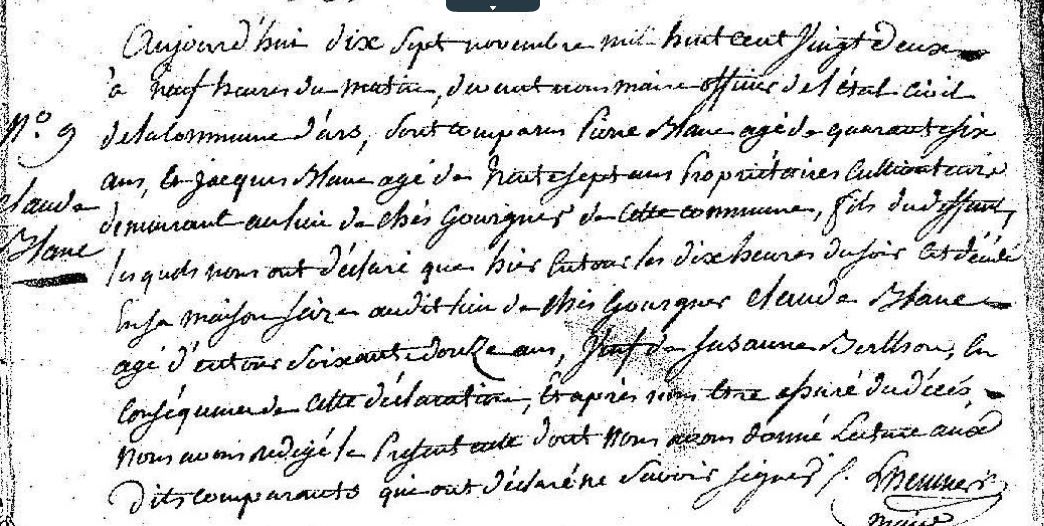 Aujourd'hui dix sept novembre mil huit cent vingt deux
à neuf heures du matin, devant nous maire officier de l'état civil
N.o 9
de la commune d'ars, sont comparus Pierre Blanc agé de quarante six
ans, et jacques Blanc agé de trente sept ans Propriétaires Cultivateurs
Claude
demeurant au lieu de chés Gourgner de cette commune, fils du deffunt,
Blanc
lesquels nous ont déclaré que hier entour les dix heures du soir est décédé
En sa maison size audit lieu de chés Gourgner claude Blanc
agé d'entour soixante douze ans, veuf de susanne Berthon, En
conséquence de cette déclaration, Et après nous être assuré du décès,
Nous avons redigé le Present acte dont Nous avons donné Lecture aux
Dits comparants qui ont déclaré ne savoir signer /.
maire